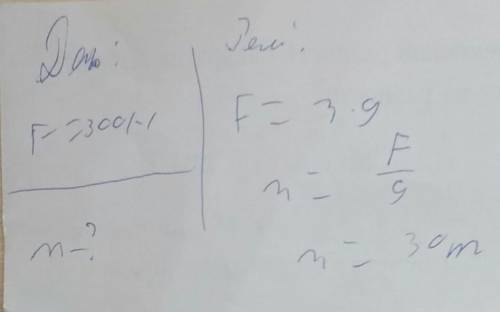 Дано:
F=300H
m-?
Реш:
F=3·g
m=F/g
m=30m